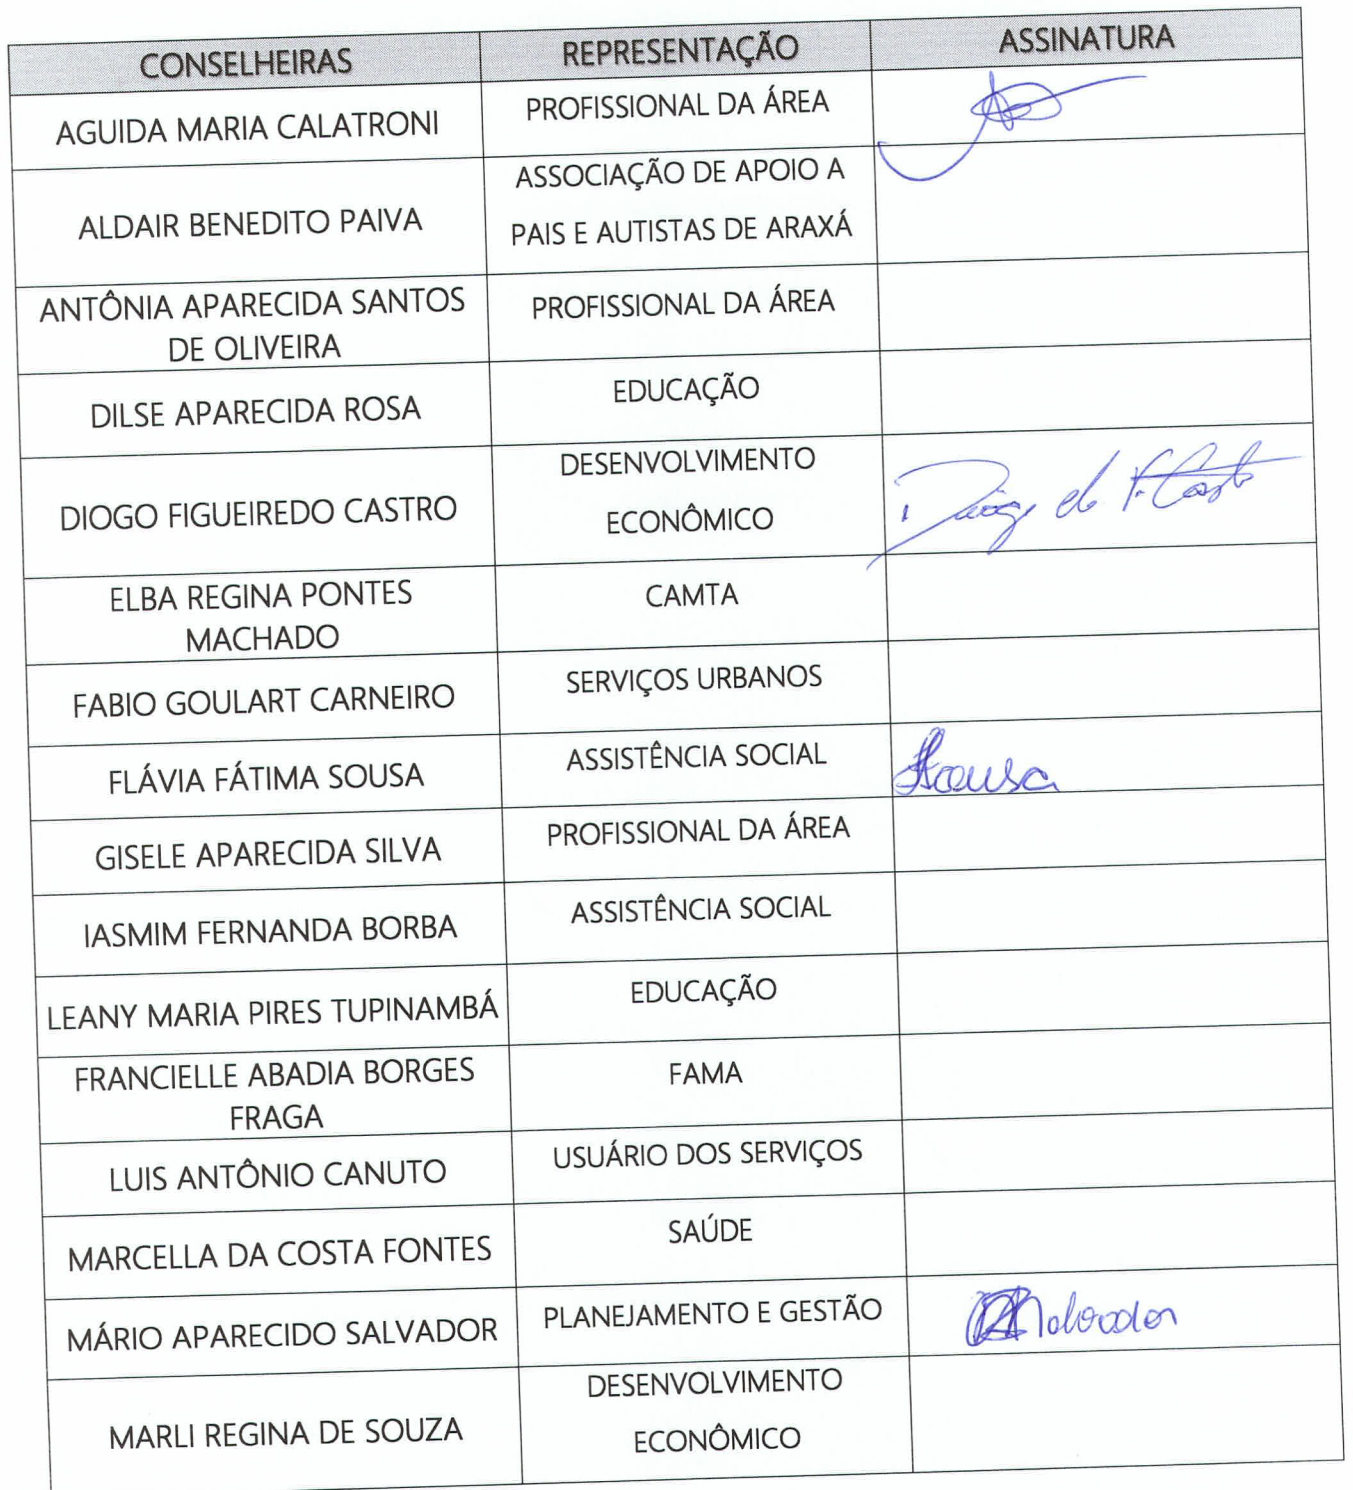 CONSELHEIRAS REPRESENTAÇÃO ASSINATURA
AGUIDA MARIA CALATRONI PROFISSIONAL DA ÁREA
ALDAIR BENEDITO PAIVA ASSOCIAÇÃO DE APOIO A
PAIS E AUTISTAS DE ARAXÁ
ANTÔNIA APARECIDA SANTOS PROFISSIONAL DA ÁREA
DE OLIVEIRA
DILSE APARECIDA ROSA EDUCAÇÃO
DIOGO FIGUEIREDO CASTRO DESENVOLVIMENTO
ECONÔMICO
ELBA REGINA PONTES CAMTA
MACHADO
FABIO GOULART CARNEIRO SERVIÇOS URBANOS
FLÁVIA FÁTIMA SOUSA ASSISTÊNCIA SOCIAL
GISELE APARECIDA SILVA PROFISSIONAL DA ÁREA
IASMIM FERNANDA BORBA ASSISTÊNCIA SOCIAL
LEANY MARIA PIRES TUPINAMBÁ EDUCAÇÃO
FRANCIELLE ABADIA BORGES FAMA
FRAGA
LUIS ANTÔNIO CANUTO USUÁRIO DOS SERVIÇOS
MARCELLA DA COSTA FONTES SAÚDE
MÁRIO APARECIDO SALVADOR PLANEJAMENTO E GESTÃO
MARLI REGINA DE SOUZA DESENVOLVIMENTO
ECONÔMICO